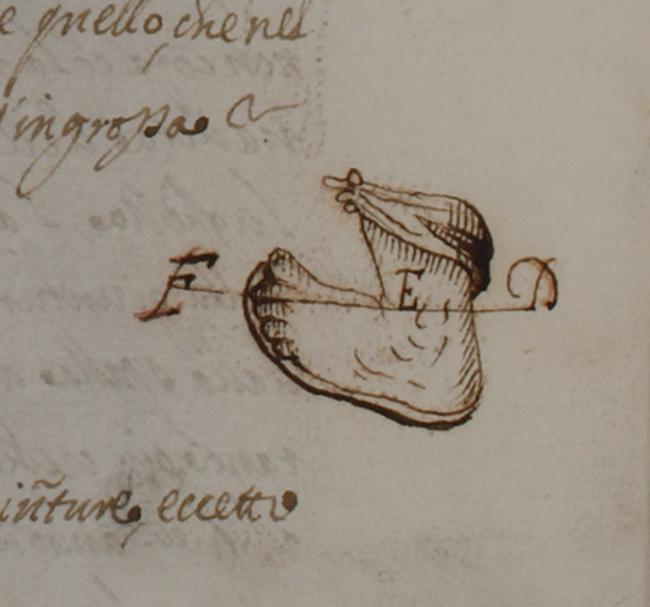 e quello che nel
l'ingrossa &
F E D
inture, eccetto